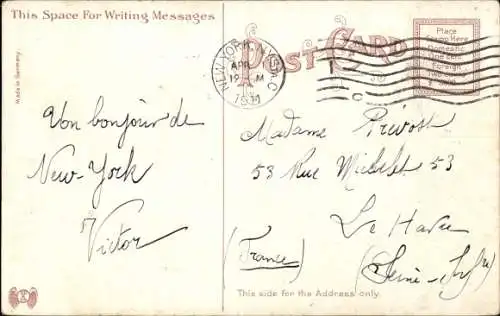 This Space For Writing Messages
POST CARD
Place
Stamp Here
Domestic
One Cent
Foreign
Two
NEW YORK, N.Y. STA. C
APR
19 M
Made in Germany
Un bonjour de
New-York
Victor
Madame Prévost
53 Rue Michelet 53
Le Havre
(France) (Seine-Infre)
This side for the Address only.